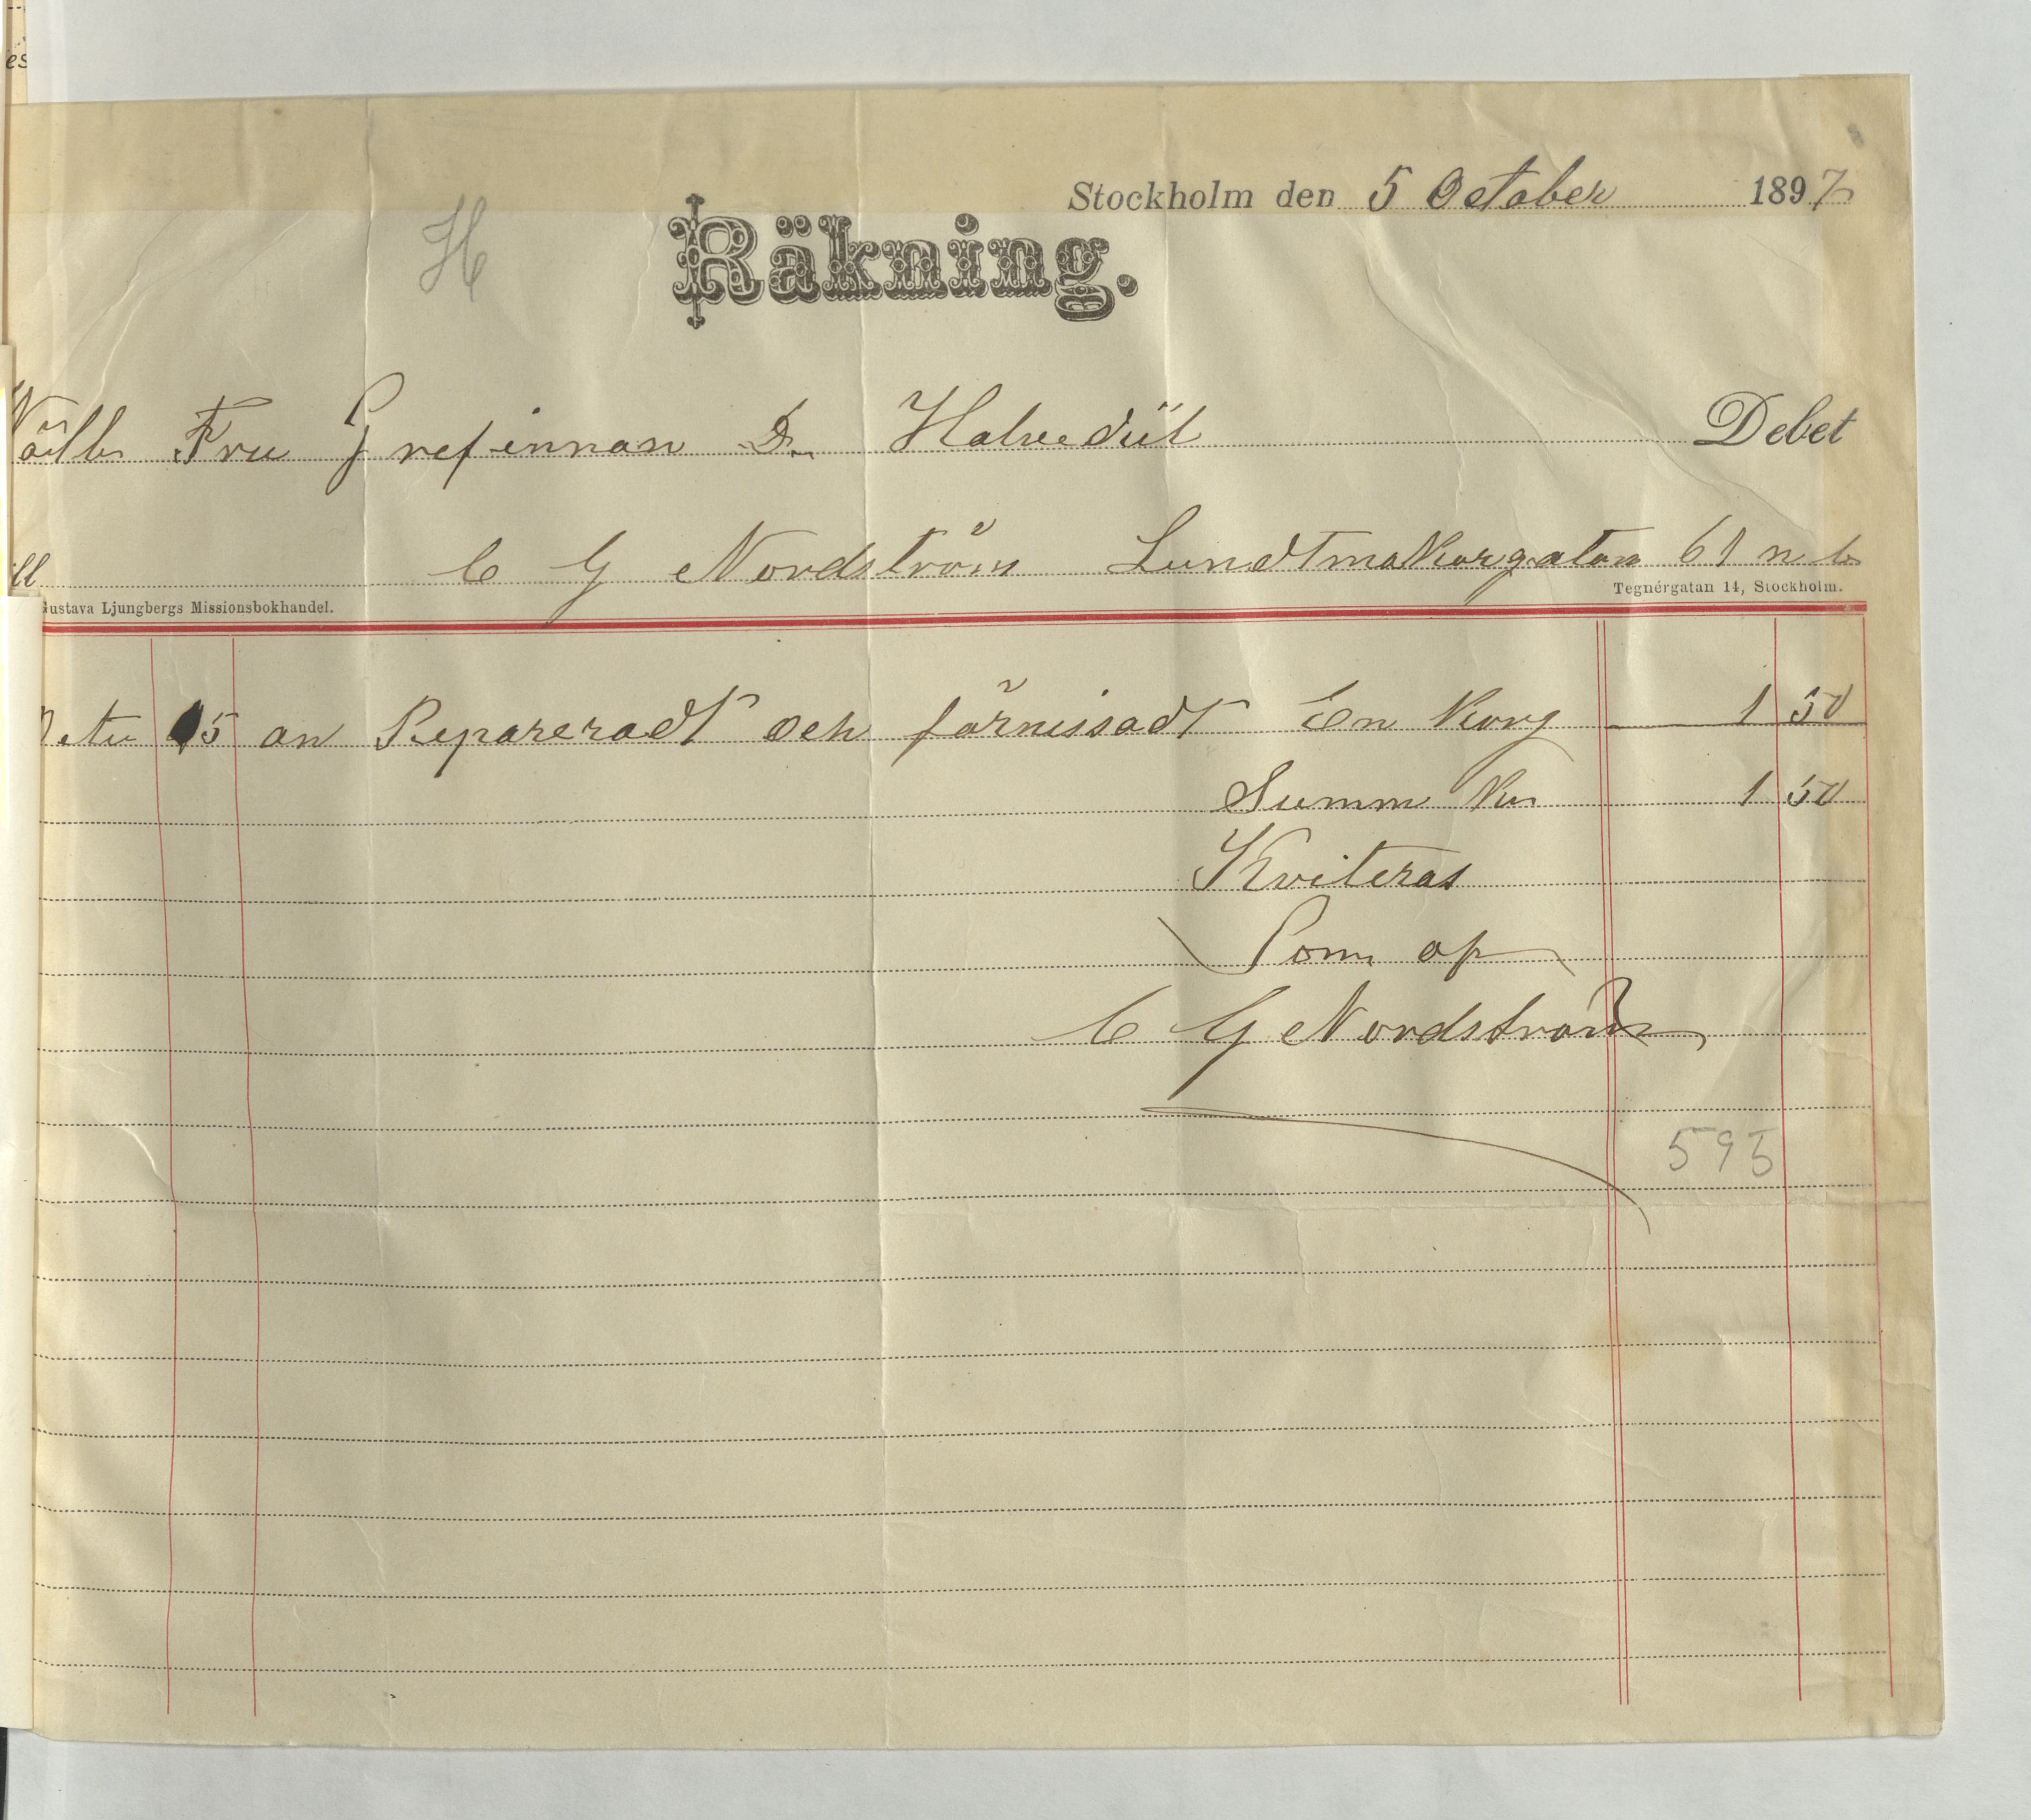 es
Stockholm den 5 October 1897
H
Räkning.
Wälb Fru Grefinnan D. Halvedül Debet
ill C G Nordström Lundtmakorgatan 61 n b
Gustava Ljungbergs Missionsbokhandel. Tegnérgatan 14, Stockholm.
Octu 5 an Repareradt och färnissadt En Korg 1 50
Summ Kr 1 50
Kviteras
Som op
C G Nordström
595